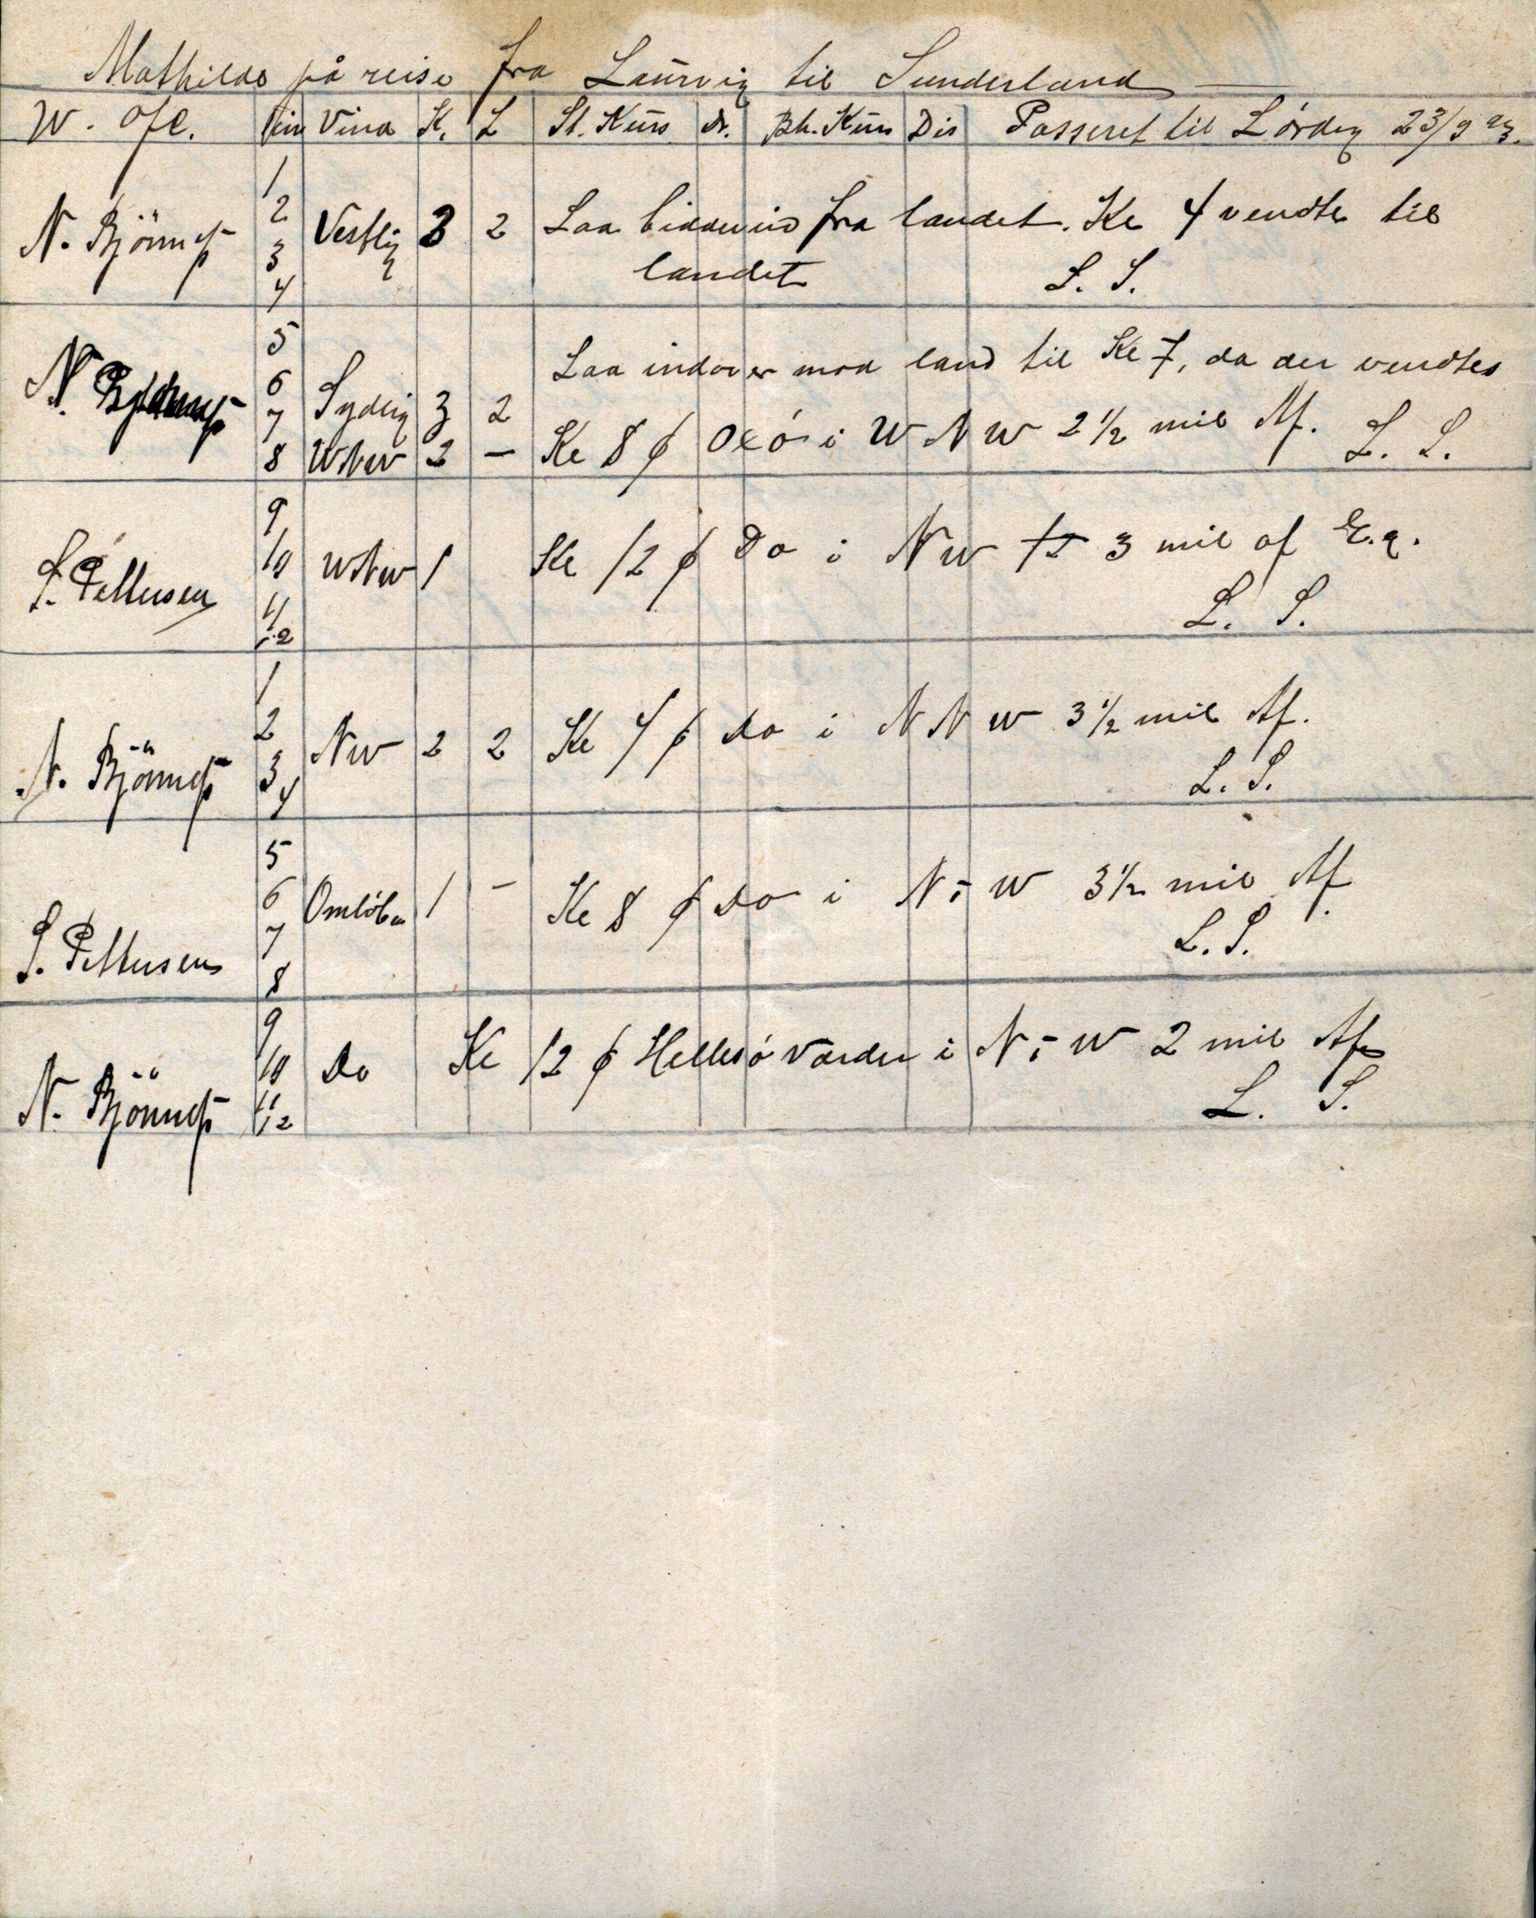 Mathilde på reise fra Laurvig til Sunderland
W. Ofc. Tim Vind K. L St. Kurs Dr. Bh. Kurs Dis Passeret til Lørdag 23/9 93.
1
2
3
4
N. Bjönnes Vestlig 3 2 Laa bidevind fra landet. Kl 4 vendte til
landet L. S.
5
6
7
8
Laa indover mod land til Kl 7, da der vendtes
Sydlig 3 2
WNW 2 – Kl 8 p Oxö i WNW 2 1/2 mil Af. L. S.
9
10
11
12
S. Pettersen WNW 1 Kl 12 p Do i NW 3 mil af E.g.
L. S.
1
2
3
4
N. Bjönnes NW 2 2 Kl 4 p Do i NNW 3 1/2 mil Af.
L. S.
5
6
7
8
S. Pettersen Omløbe 1 – Kl 8 p Do i N;- W 3 1/2 mil Af
L. S.
9
10
11
12
N. Bjönnes Do Kl 12 p Hellesö Varder i N;- W 2 mil Af
L. S.